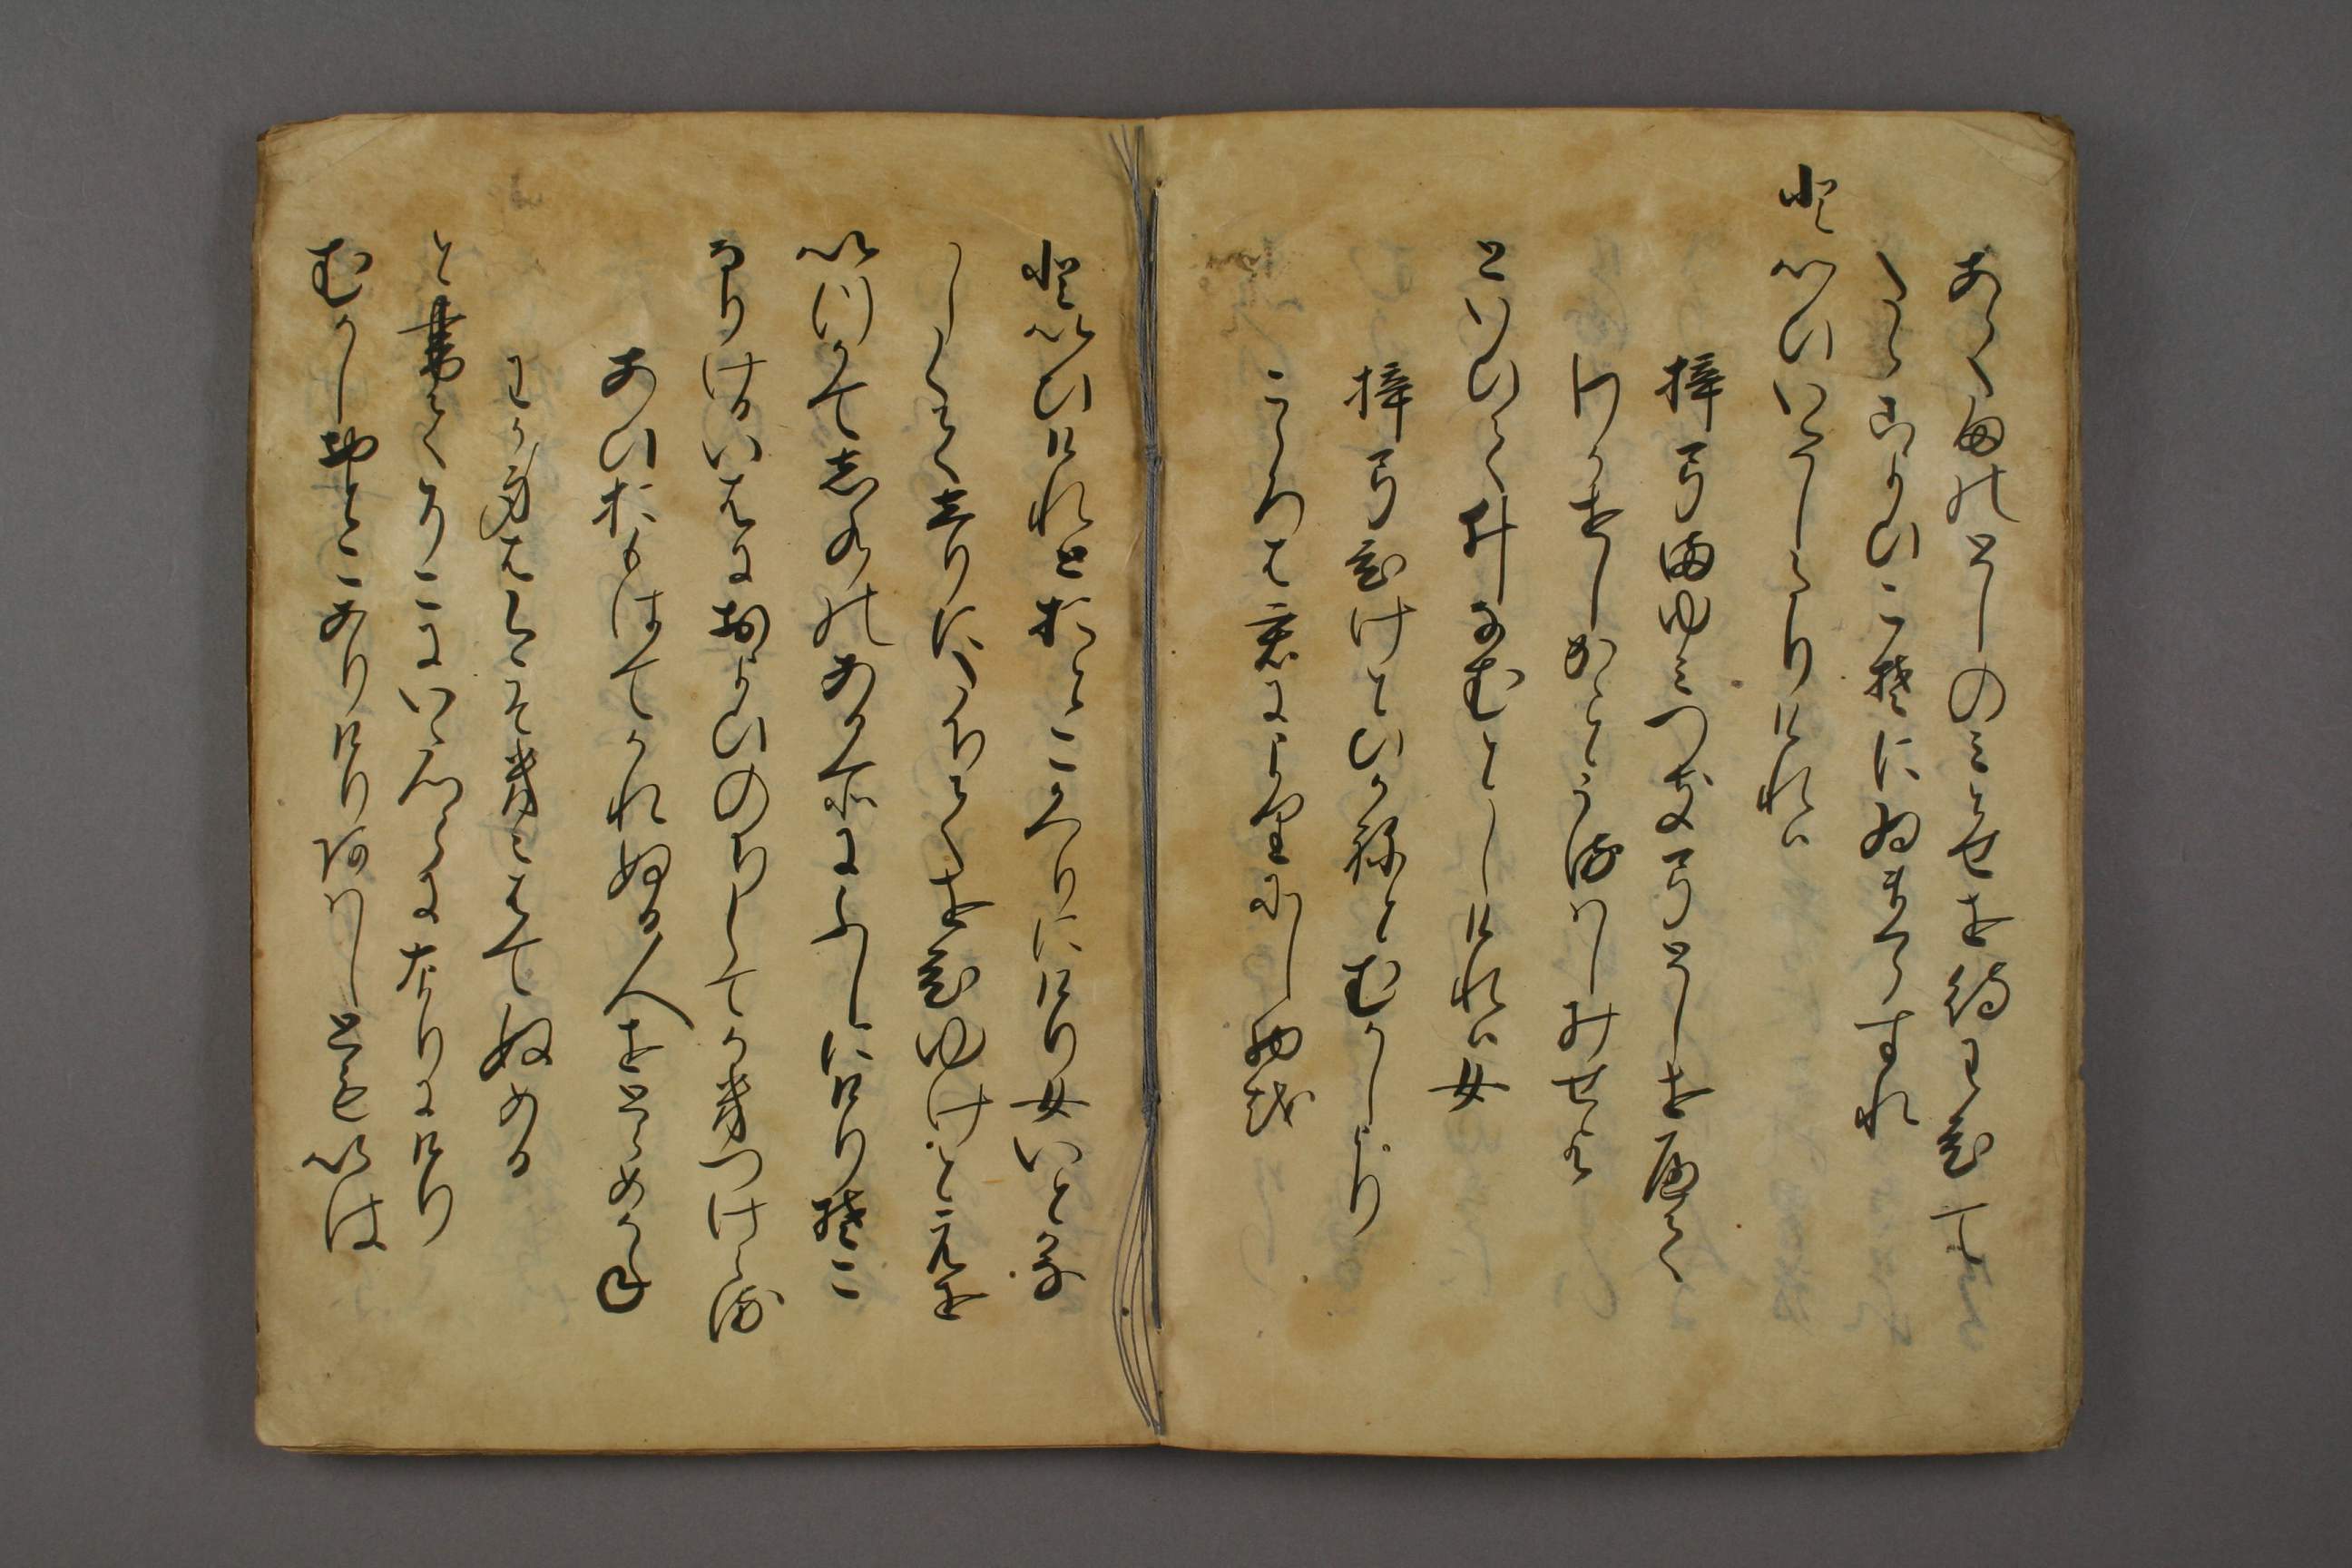 あらたまのとしのみとせを待わひて
たゝこよひこそにゐまくらすれ
といひいたしたりけれは
梓弓まゆみつき弓としを歴て
わかせしかことうるはしみせよ
といひていなむとしけれは女
梓弓ひけとひかねとむかしより
こゝろは君によりにし物を
といひけれとおとこかへりにけり女いとかな
しくてしりにたちてをひゆけとえを
いつかて志水のある所にふしにけりそこ
なりけるいはにおよひのちしてかきつけゝる
あひおもはてかれぬる人をとゝめかね
わか身はいまそきえはてぬめる
と書てそこにいたつらになりにけり
むかしおとこありけりあはしともいは